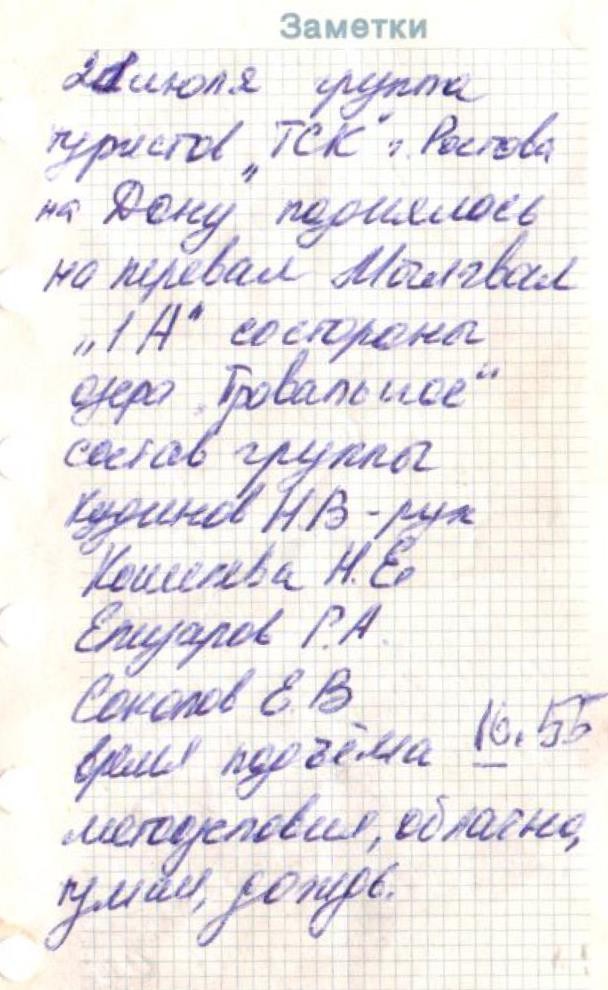 Заметки
21 июля группа
туристов „ТСК" г. Ростова
на Дону поднялось
на перевал
„1А" состороны
озера „Провальное"
состав группы
Кудинов Н В - рук
Кошелева Н.Е.
Р.А.
Соколов Е.В
время подъёма 16.55
метоусловия, облачно,
туман, дождь.